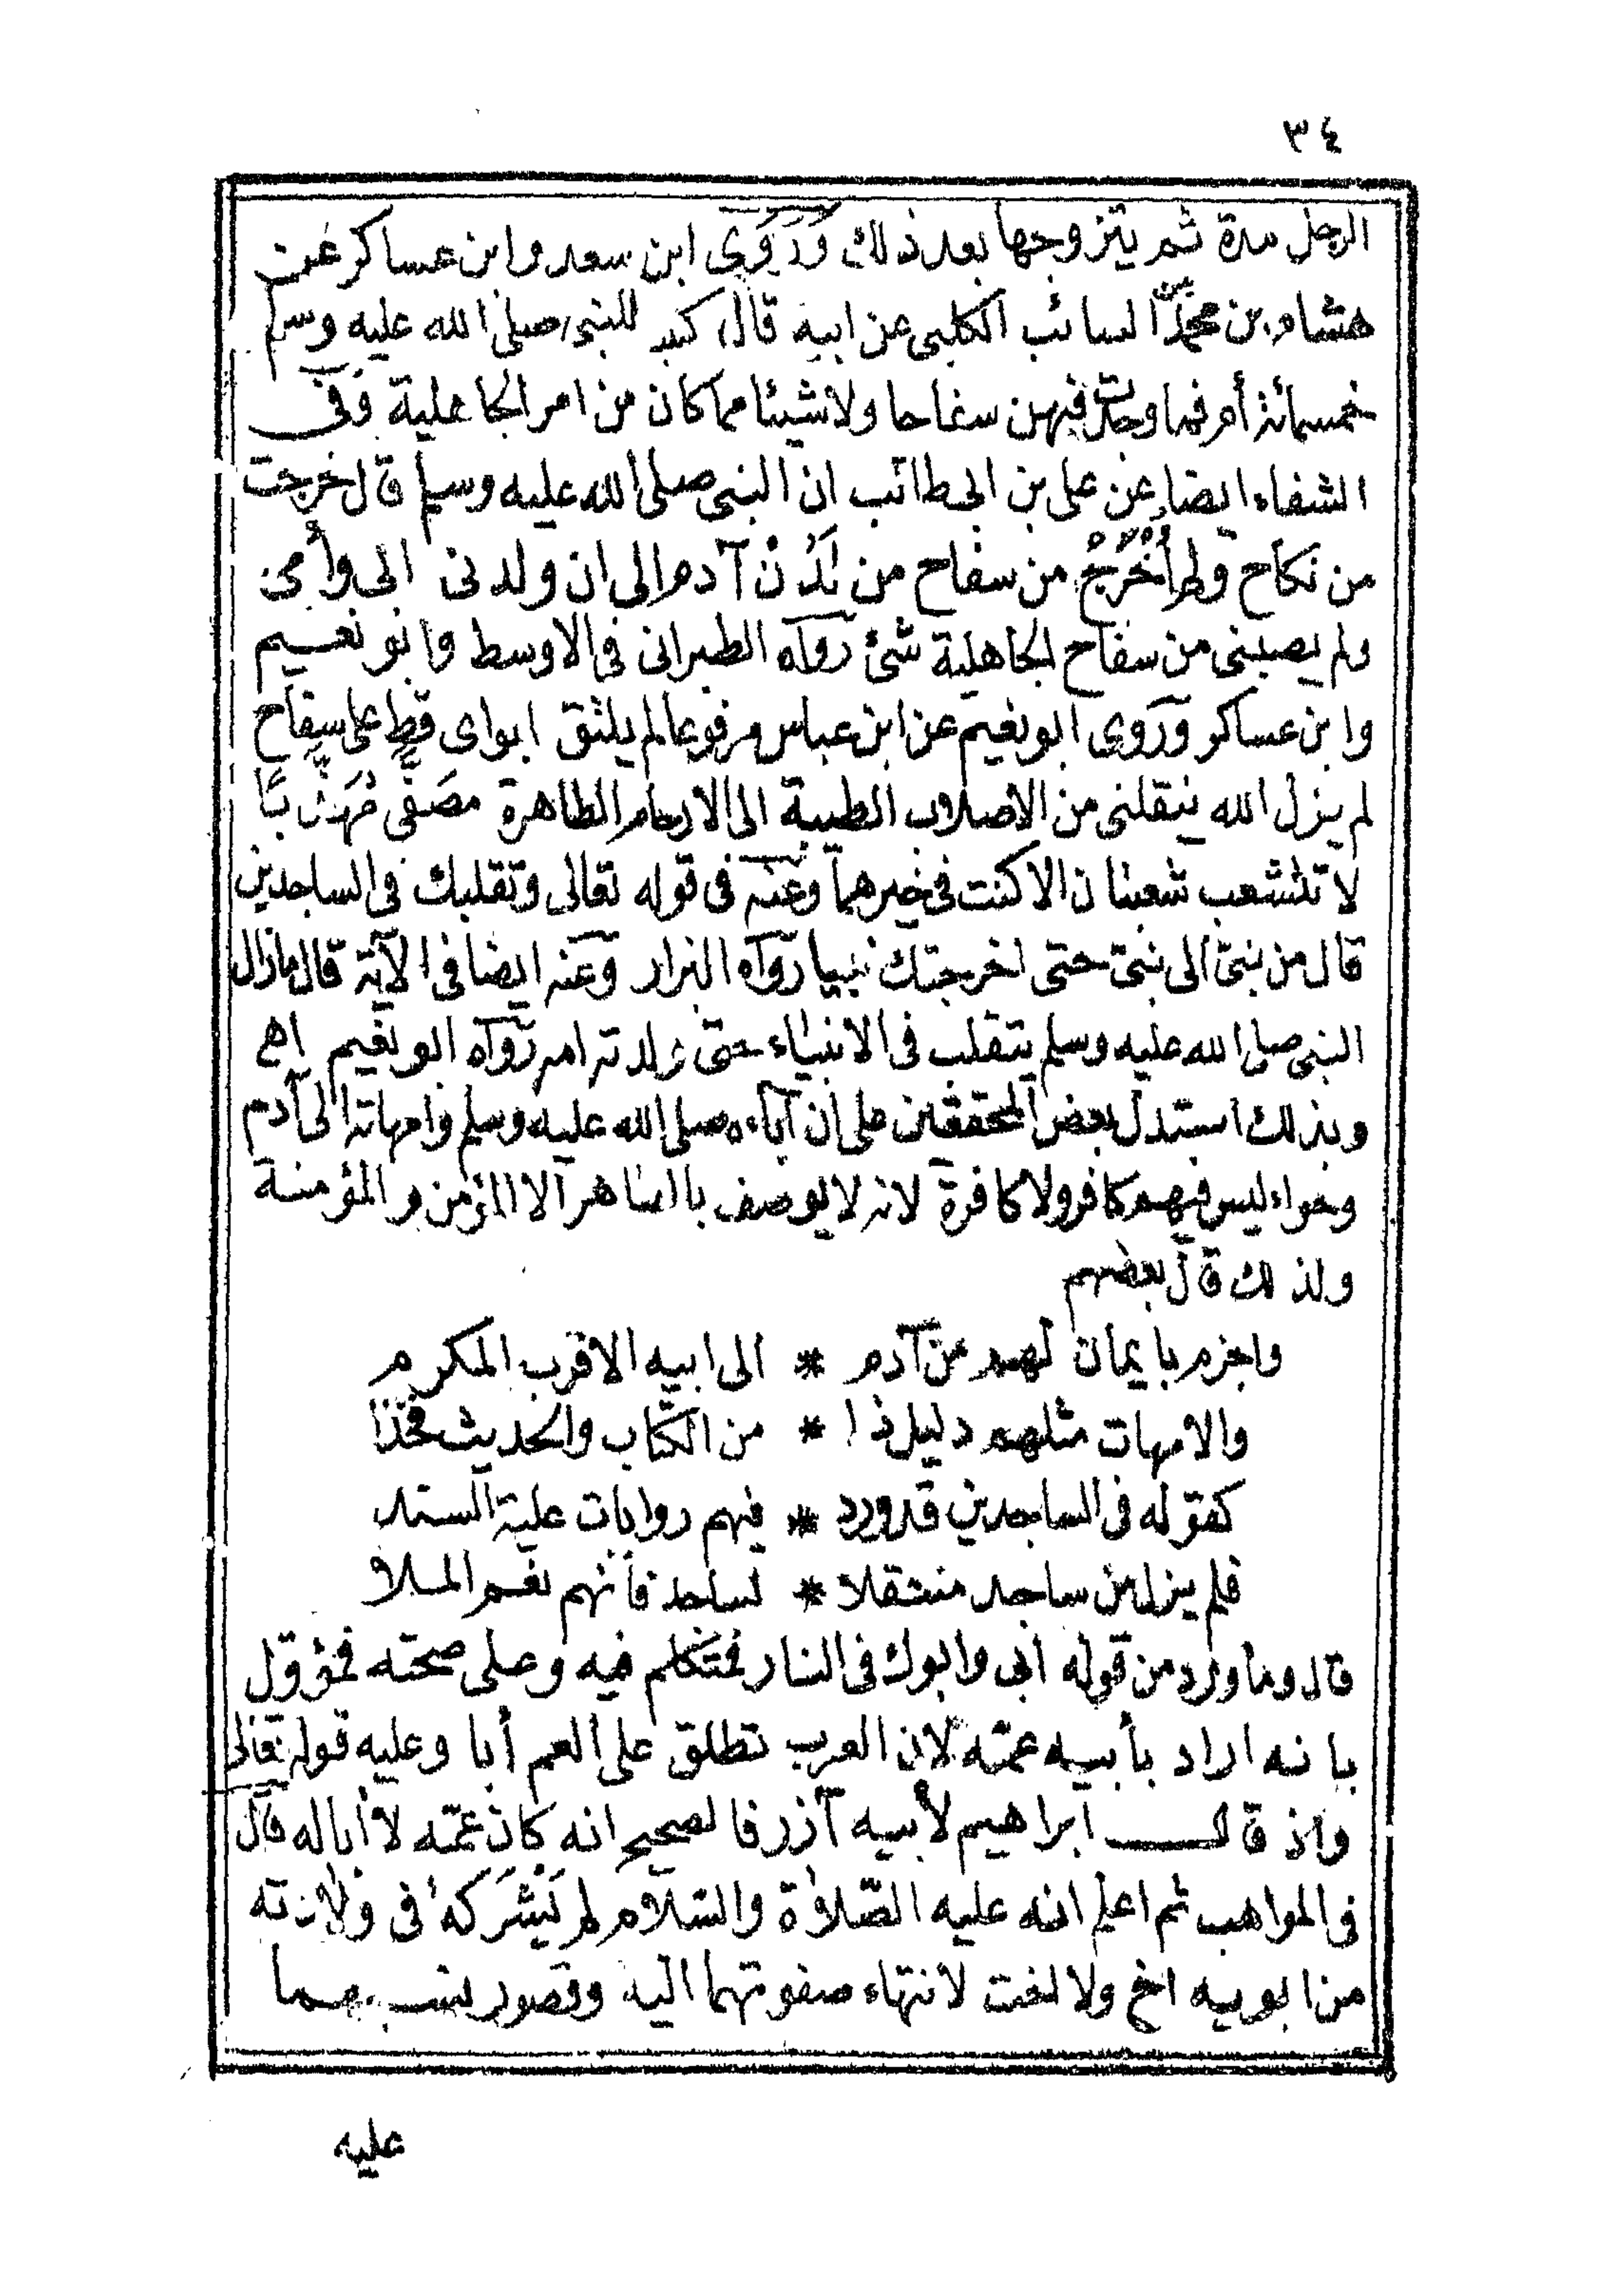 ٣٤
الرجل مدة ثم يتزوجها بعد ذلك وَرَوَى ابن سعد وابن عساكر عن
هشام بن محمد بن السائب الكلبى عن ابيه قال كتبت للنبى صلى الله عليه وسلم
خمسمائة أم فما وجدت فيهن سفاحا ولا شيئا مما كان من امر الجاهلية وفى
الشفاء ايضا عن على بن ابى طالب ان النبى صلى الله عليه وسلم قال خرجت
من نكاح ولم أُخْرَجْ من سفاح من لَدُنْ آدم الى ان ولدنى ابى وأمى
ولم يصبنى من سفاح الجاهلية شئ رواه الطبرانى فى الاوسط وابو نعيم
وابن عساكر وروى ابو نعيم عن ابن عباس مرفوعا لم يلتق ابواى قط على سفاح
لم يزل الله ينقلنى من الاصلاب الطيبة الى الارحام الطاهرة مصَفَّى مُهَذَّبًا
لا تتشعب شعبتان الا كنت فى خيرهما وعنه فى قوله تعالى وتقلبك فى الساجدين
قال من نبىّ الى نبىّ حتى اخرجتك نبيا رواه البزار وعنه ايضا فى الآية قال مازال
النبى صلى الله عليه وسلم يتقلب فى الانبياء حتى ولدته امه رواه ابو نعيم اهـ
وبذلك استدل بعض المحققين على ان آباءه صلى الله عليه وسلم وامهاته الى آدم
وحواء ليس فيهم كافر ولا كافرة لانه لا يوصف بالطاهر الا المؤمن والمؤمنة
ولذلك قال بعضهم
واجزم بايمان لهم من آدم * الى ابيه الاقرب المكرم
والامهات مثلهم دليل ذا * من الكتاب والحديث فخذا
كقوله فى الساجدين قد ورد * فيهم روايات علية السند
فلم يزل من ساجد منتقلا * لساجد فأنهم نعم الملا
قال وما ورد من قوله ابى وابوك فى النار فمتكلم فيه وعلى صحته فمؤول
بانه اراد بأبيه عمّه لان العرب تطلق على العم أبا وعليه قوله تعالى
واذ قال ابراهيم لأبيه آزر فالصحيح انه كان عمّه لا أبا له قال
فى المواهب ثم اعلم انه عليه الصّلاة والسّلام لم يَشْرَكهُ فى ولادته
من ابويه اخ ولا اخت لانتهاء صفوتهما اليه وقصور نسبهما
عليه